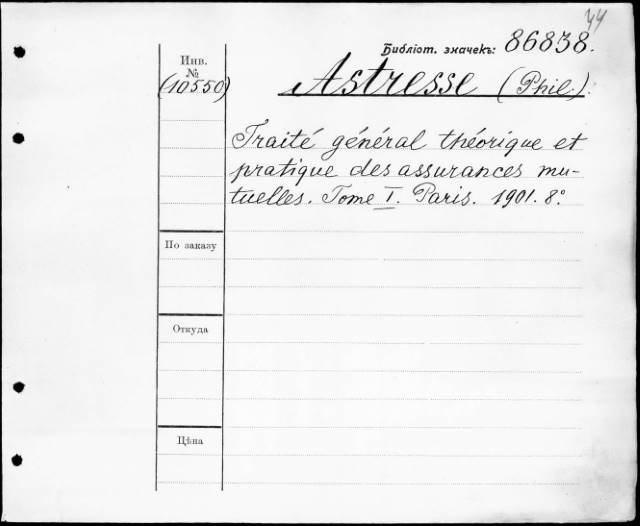 44
Библіот. значекъ: 86838.
Инв.
№
(10550)
Astresse (Phil.).
Traité général théorique et
pratique des assurances mu-
tuelles. Tome I. Paris. 1901. 8°.
По заказу
Откуда
Цѣна